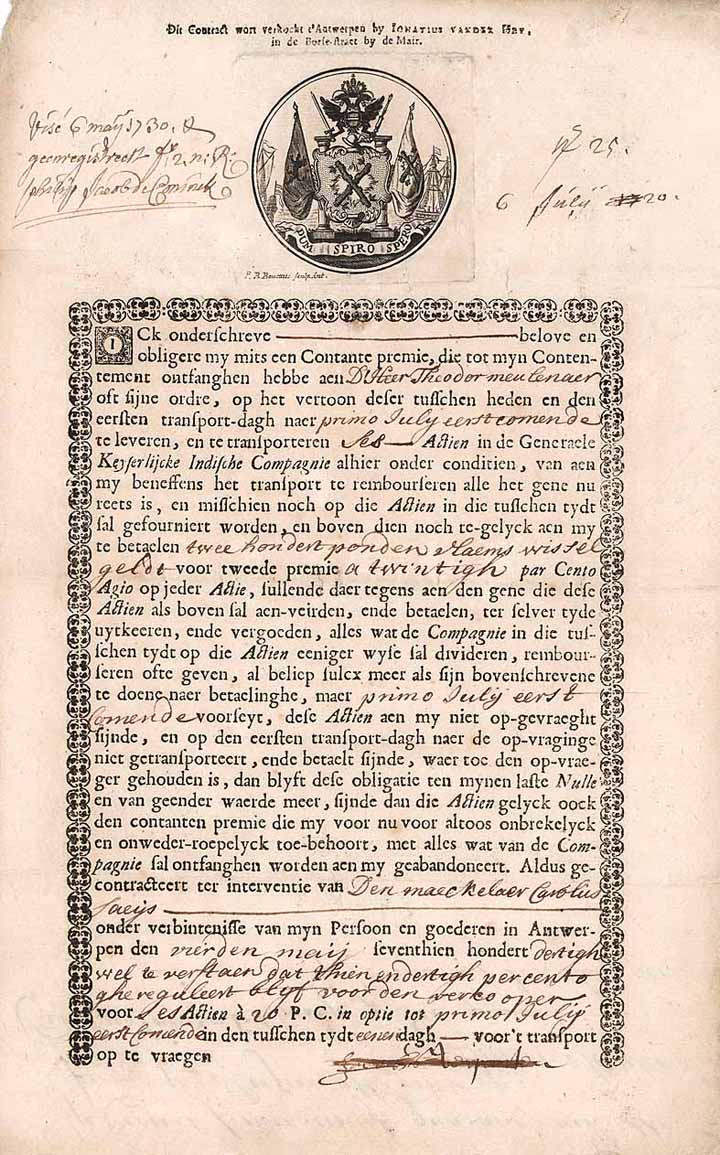 Dit Contract wort verkocht t'Antwerpen by IGNATIUS VANDER HEY,
in de Borse-straet by de Mair.
Visé 6 maij 1730. &
geenregistreert f. 2. n: R:
philip Jacob de Coninck
N 25.
6 Julij 20.
DUM SPIRO SPERO
P. B. Bouttats sculp. Ant.
ICk onderschreve belove en
obligere my mits een Contante premie, die tot myn Conten-
tement ontfanghen hebbe aen D'Heer Theodor meulenaer
oft sijne ordre, op het vertoon deser tusschen heden en den
eersten transport-dagh naer primo Julij eerstcomende
te leveren, en te transporteren Ses Actien in de Generaele
Keyserlijcke Indische Compagnie alhier onder conditien, van aen
my beneffens het transport te rembourseren alle het gene nu
reets is, en misschien noch op die Actien in die tusschen tydt
sal gefourniert worden, en boven dien noch te-gelyck aen my
te betaelen twee hondert ponden vlaems wissel
geldt voor tweede premie a twintigh par Cento
Agio op jeder Actie, sullende daer tegens aen den gene die dese
Actien als boven sal aen-veirden, ende betaelen, ter selver tyde
uytkeeren, ende vergoeden, alles wat de Compagnie in die tus-
schen tydt op die Actien eeniger wyse sal divideren, rembour-
seren ofte geven, al beliep sulcx meer als sijn bovenschrevene
te doene naer betaelinghe, maer primo Julij eerst
Comende voorseyt, dese Actien aen my niet op-gevraeght
sijnde, en op den eersten transport-dagh naer de op-vraginge
niet getransporteert, ende betaelt sijnde, waer toe den op-vrae-
ger gehouden is, dan blyft dese obligatie ten mynen laste Nulle
en van geender waerde meer, sijnde dan die Actien gelyck oock
den contanten premie die my voor nu voor altoos onbrekelyck
en onweder-roepelyck toe-behoort, met alles wat van de Com-
pagnie sal ontfanghen worden aen my geabandoneert. Aldus ge-
contracteert ter interventie van Den maeckelaer Carolus
saeijs
onder verbintenisse van myn Persoon en goederen in Antwer-
pen den vierden maij seventhien hondert dertigh
wel te verstaen dat thien endertigh per cento
ghereguleert blijf voor den vercooper
voor Ses Actien à 20 P. C. in optie tot primo Julij
eerstComende in den tusschen tydt eenen dagh voor't transport
op te vraegen